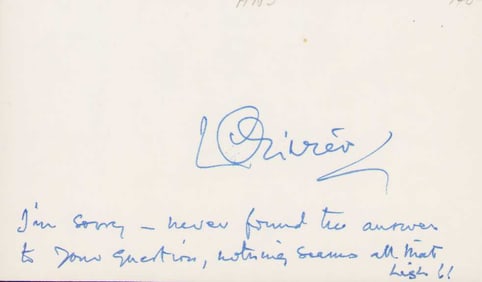 L Olivier
I'm sorry – never found the answer
to your question, nothing seems all that
high !!